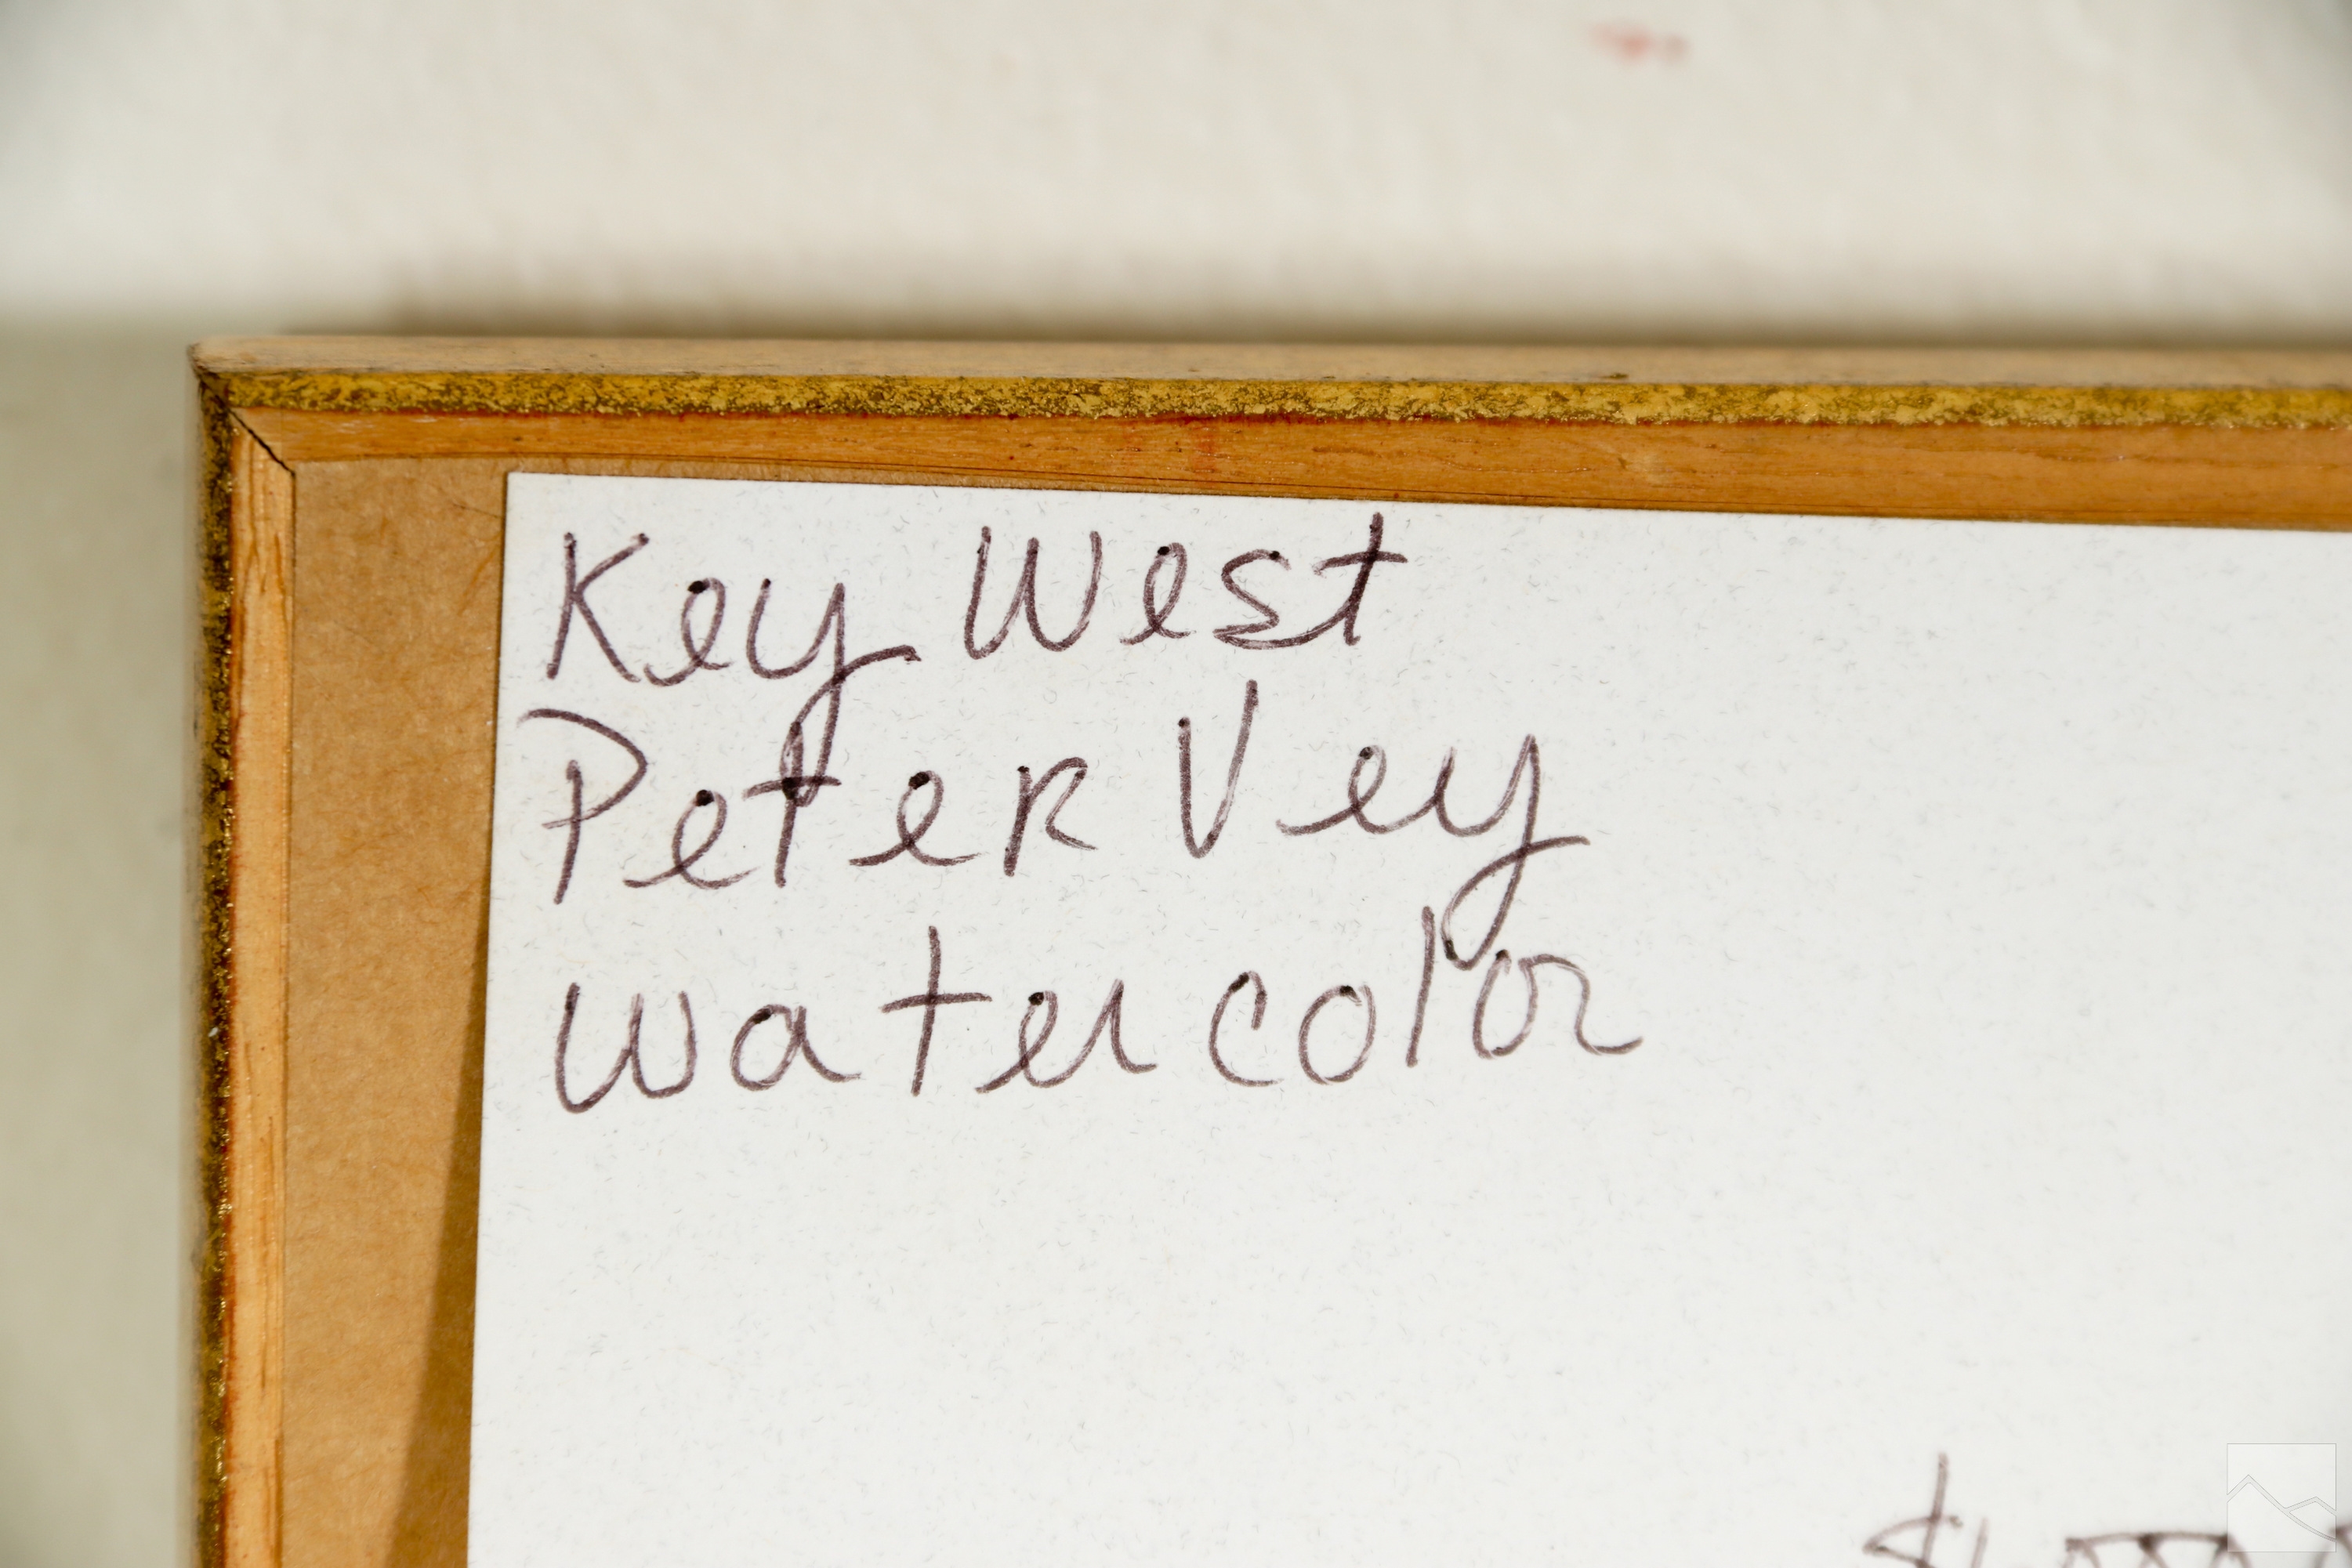 Key West
Peter Vey
watercolor